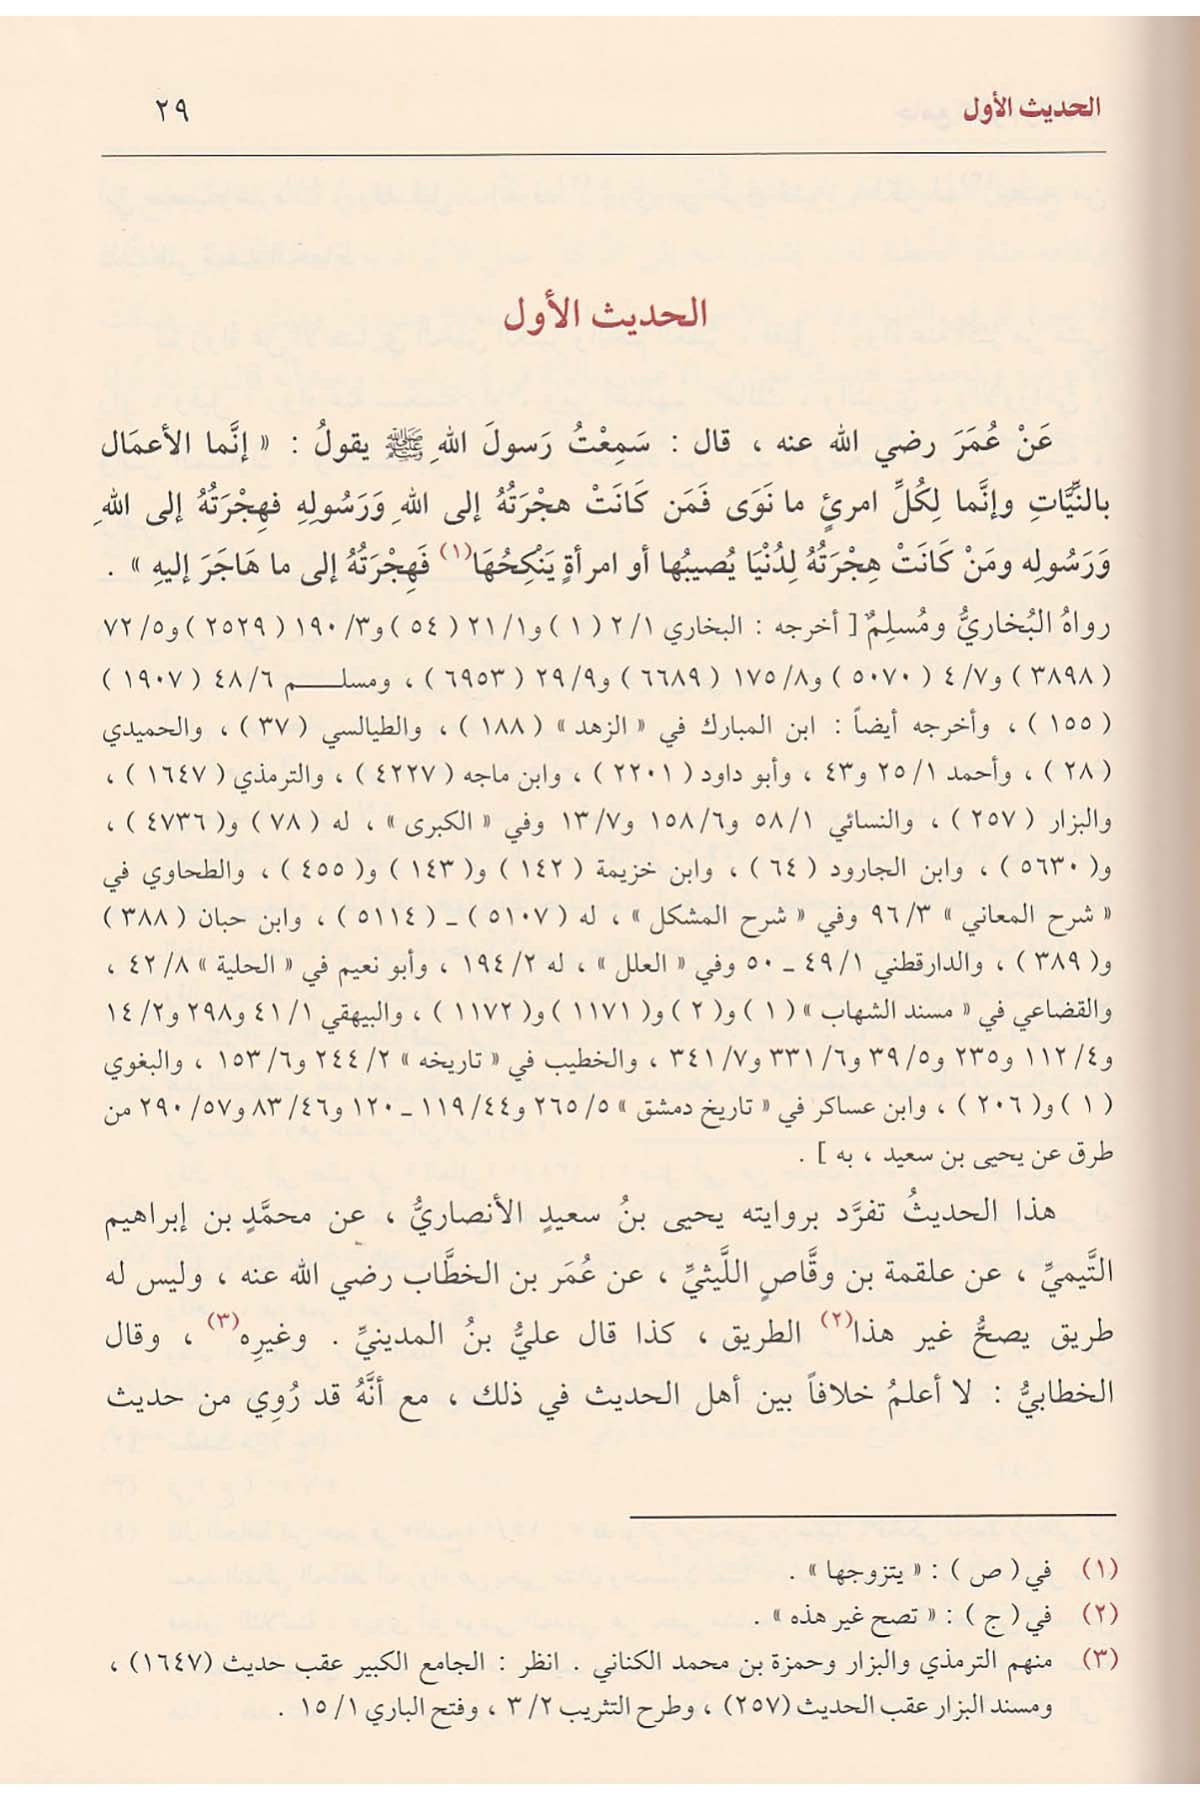 الحديث الأول
٢٩
الحديث الأول
عَنْ عُمَرَ رضي الله عنه ، قال : سَمِعْتُ رَسولَ اللهِ ﷺ يقولُ : « إنَّما الأعمَال
بالنِّيَّاتِ وإنَّما لِكُلِّ امرئٍ ما نَوَى فَمَن كَانَتْ هجْرَتُهُ إلى اللهِ وَرَسُولِهِ فهِجْرَتُهُ إلى اللهِ
وَرَسُولِه ومَنْ كَانَتْ هِجْرَتُهُ لِدُنْيَا يُصيبُها أو امرأةٍ يَنْكِحُهَا(١) فَهِجْرَتُهُ إلى ما هَاجَرَ إليهِ » .
رواهُ البُخاريُّ ومُسلِمٌ [ أخرجه : البخاري ١/ ٢ ( ١ ) و١/ ٢١ ( ٥٤ ) و٣/ ١٩٠ ( ٢٥٢٩ ) و٥/ ٧٢
( ٣٨٩٨ ) و٧/ ٤ ( ٥٠٧٠ ) و٨/ ١٧٥ ( ٦٦٨٩ ) و٩/ ٢٩ ( ٦٩٥٣ ) ، ومسلـــــم ٦/ ٤٨ ( ١٩٠٧ )
( ١٥٥ ) ، وأخرجه أيضاً : ابن المبارك في « الزهد » ( ١٨٨ ) ، والطيالسي ( ٣٧ ) ، والحميدي
( ٢٨ ) ، وأحمد ١/ ٢٥ و٤٣ ، وأبو داود ( ٢٢٠١ ) ، وابن ماجه ( ٤٢٢٧ ) ، والترمذي ( ١٦٤٧ ) ،
والبزار ( ٢٥٧ ) ، والنسائي ١/ ٥٨ و٦/ ١٥٨ و٧/ ١٣ وفي « الكبرى » ، له ( ٧٨ ) و( ٤٧٣٦ ) ،
و( ٥٦٣٠ ) ، وابن الجارود ( ٦٤ ) ، وابن خزيمة ( ١٤٢ ) و( ١٤٣ ) و( ٤٥٥ ) ، والطحاوي في
« شرح المعاني » ٣/ ٩٦ وفي « شرح المشكل » ، له ( ٥١٠٧ ) ـ ( ٥١١٤ ) ، وابن حبان ( ٣٨٨ )
و( ٣٨٩ ) ، والدارقطني ١/ ٤٩ ـ ٥٠ وفي « العلل » ، له ٢/ ١٩٤ ، وأبو نعيم في « الحلية » ٨/ ٤٢ ،
والقضاعي في « مسند الشهاب » ( ١ ) و( ٢ ) و( ١١٧١ ) و( ١١٧٢ ) ، والبيهقي ١/ ٤١ و٢٩٨ و٢/ ١٤
و٤/ ١١٢ و٢٣٥ و٥/ ٣٩ و٦/ ٣٣١ و٧/ ٣٤١ ، والخطيب في « تاريخه » ٢/ ٢٤٤ و٦/ ١٥٣ ، والبغوي
( ١ ) و( ٢٠٦ ) ، وابن عساكر في « تاريخ دمشق » ٥/ ٢٦٥ و٤٤/ ١١٩ ـ ١٢٠ و٤٦/ ٨٣ و٥٧/ ٢٩٠ من
طرق عن يحيى بن سعيد ، به ] .
هذا الحديثُ تفرَّد بروايته يحيى بنُ سعيدٍ الأنصاريُّ ، عن محمَّدِ بن إبراهيم
التَّيميِّ ، عن علقمة بن وقَّاصٍ اللَّيثيِّ ، عن عُمَر بن الخطَّاب رضي الله عنه ، وليس له
طريق يصحُّ غير هذا(٢) الطريق ، كذا قال عليُّ بنُ المدينيِّ . وغيرِه(٣) ، وقال
الخطابيُّ : لا أعلمُ خلافاً بين أهل الحديث في ذلك ، مع أنَّهُ قد رُوِي من حديث
(١) في ( ص ) : « يتزوجها » .
(٢) في ( ج ) : « تصح غير هذه » .
(٣) منهم الترمذي والبزار وحمزة بن محمد الكناني . انظر : الجامع الكبير عقب حديث (١٦٤٧) ،
ومسند البزار عقب الحديث (٢٥٧) ، وطرح التثريب ٢/ ٣ ، وفتح الباري ١/ ١٥ .